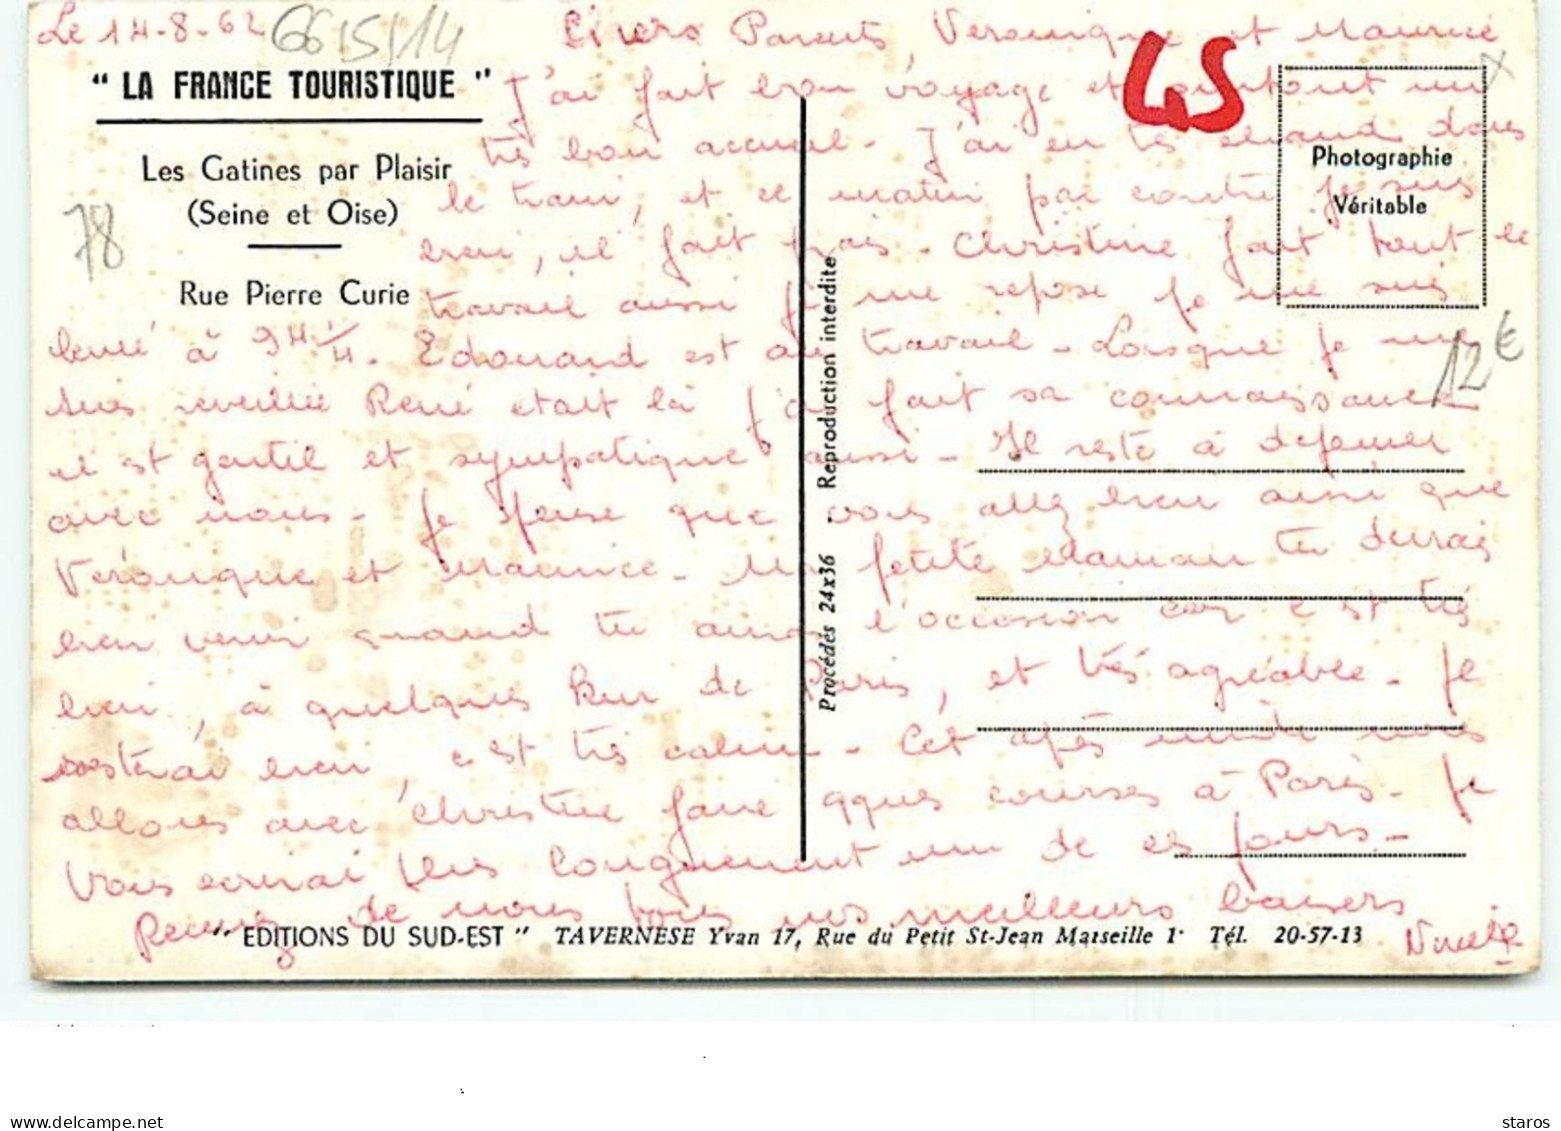 Le 14-8-62
6615/14
Chers Parents, Veronique et Maurice
45
" LA FRANCE TOURISTIQUE "
J'ai fait bon voyage et surtout un
très bon accueil. J'ai eu très chaud dans
Les Gatines par Plaisir
(Seine et Oise)
78
Rue Pierre Curie
Photographie
Véritable
le train, et ce matin par contre je suis
bien, il fait frais. Christine fait tout le
travail aussi je me repose je me suis
levée à 9H 1/4. Edouard est au travail. Lorsque je me
suis reveillée René etait là j'ai fait sa connaissance
il est gentil et sympatique aussi. Il reste à dejeuner
avec nous. Je pense que vous allez bien ainsi que
Véronique et Maurice. Ma petite Maman tu devrais
bien venir quand tu auras l'occasion car c'est très
bien, à quelques km de Paris, et très agréable. Je
resterai bien, c'est très calme. Cet après midi nous
allons avec Christine faire qques courses à Paris. Je
vous ecrirai plus longuement un de ces jours.
Recevez de nous tous nos meilleurs baisers
12 €
Reproduction interdite
Procédés 24x36
" EDITIONS DU SUD-EST " TAVERNESE Yvan 17, Rue du Petit St-Jean Marseille 1r Tél. 20-57-13
My Delcampe.net
staros